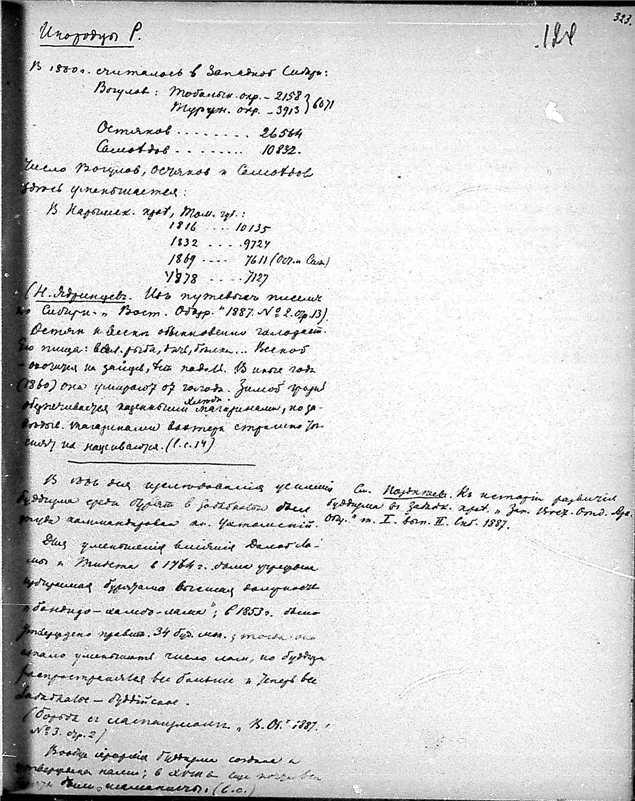 323.
Инородцы Р.
124
В 1860 г. считалось в Западной Сибири:
Вогулов: Тобольск. окр. – 2158
Турин. окр. – 3913 } 6071
Остяков ........ 26564
Самоедов ........ 10832.
Число Вогулов, Остяков и Самоедов
здесь уменьшается:
В Нарымск. кра, Том. гу.:
1816 .... 10135
1832 .... 9724
1869 .... 7611 (Ост. и Сам.)
1878 .... 7127
(Н. Ядринцевъ. Изъ путевыхъ писемъ
по Сибири. „Вост. Обозр." 1887. № 2. стр. 13).
Остяк и весны обыкновенно голодает.
Его пища: рыба, дичь, белка... Весной
охотится на зайцев, ест падаль. В иные года
(1860) они умирают от голода. Зимой
обеспечивается казенными хлебн. магазинами, но за-
магазинами вахтера страшно
на наживаются. (l. c. 14)
В для исследования усиления
буддизма среди бурят в Забайкалье был
туда командирован кн. Ухтомский.
Для уменьшения влияния Далай-Ла-
мы и Тибета в 1764 г. была учреждена
избираемая бурятами высшая должность
„бандидо-хамбо-лама"; в 1853 г. было
утверждено правит. 34 буд. мон.; тогда
стало уменьшать число лам, но буддизм
распространялся все больше и теперь все
Забайкалье – буддийское.
(Борьба с ламаизмомъ „В. Об." 1887.
№ 3. стр. 2)
Вообще иерархия буддизма создана и
утверждена нами; в еще
были шаманисты. (l. c.)
См. Къ истории развития
буддизма въ Забайк. крае. „Зап. Отд. Арх.
Общ." т. I. вып. II. Спб. 1887.